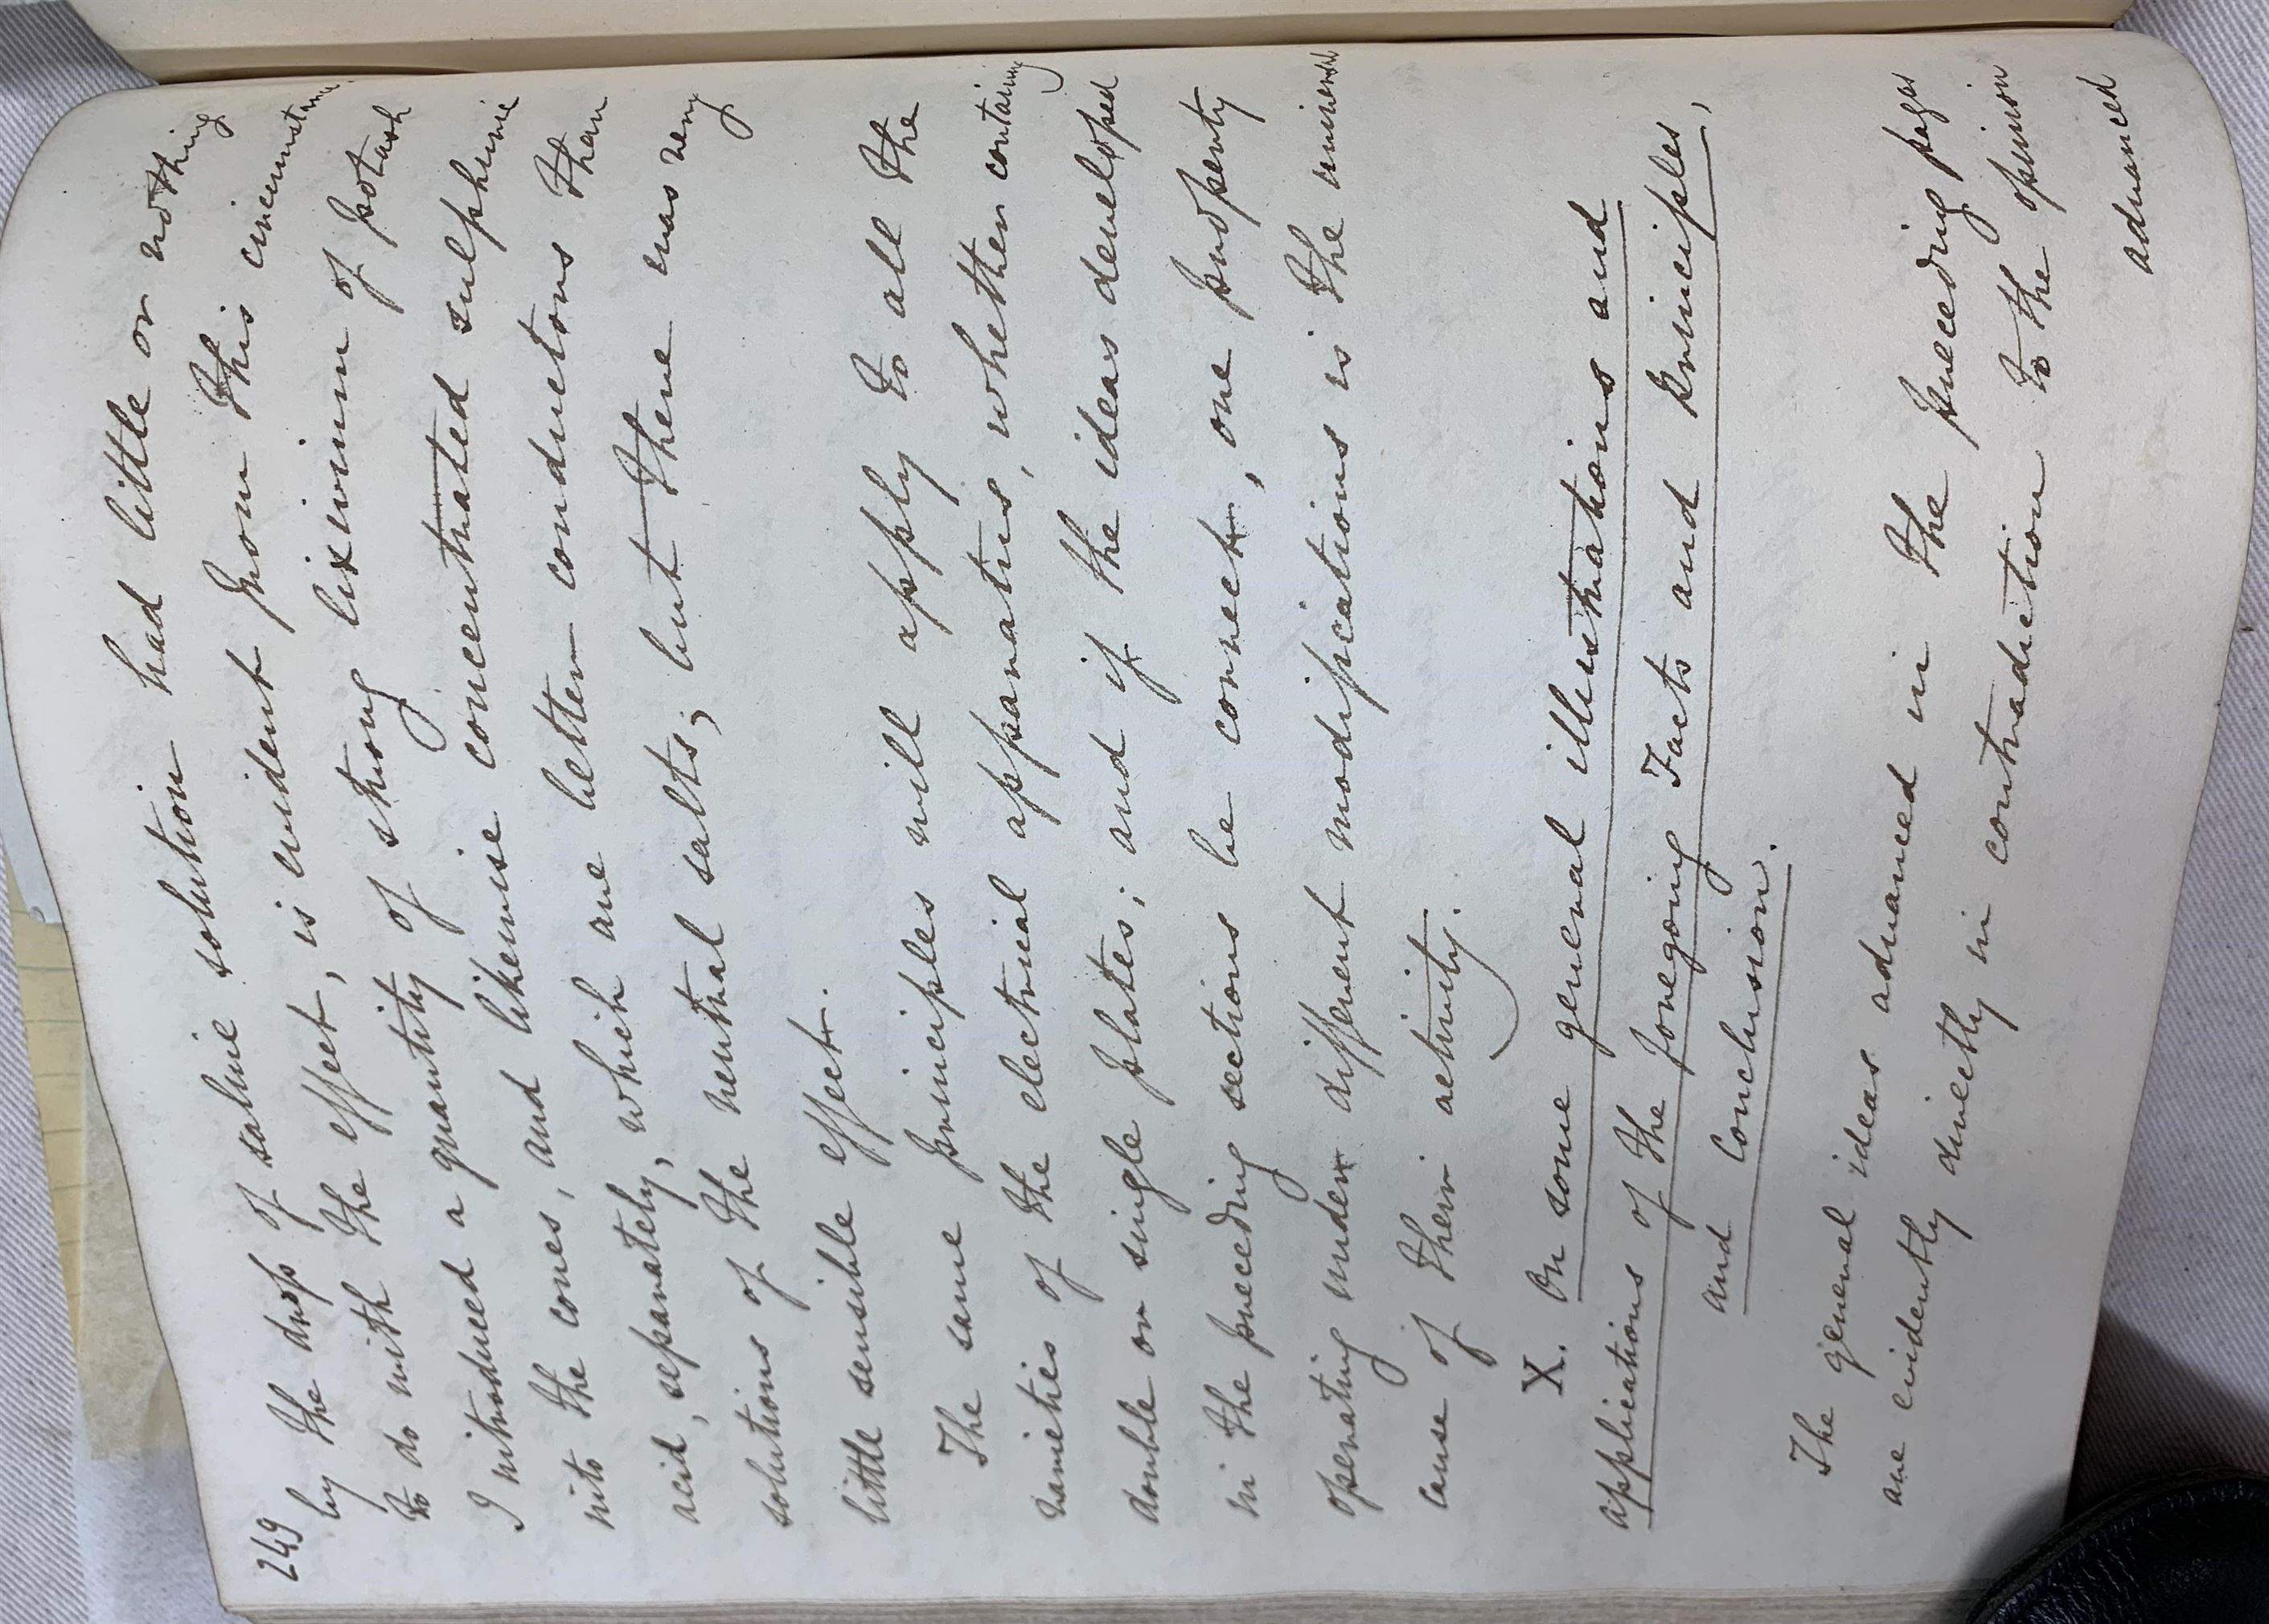 249
by the drops of saline solution had little or nothing
to do with the effect, is evident from this circumstance,
I introduced a quantity of strong lixivium of potash
into the cones, and likewise concentrated sulphuric
acid, separately, which are better conductors than
solutions of the neutral salts; but there was very
little sensible effect.
The same principles will apply to all the
varieties of the electrical apparatus, whether containing
double or single plates; and if the ideas developed
in the preceding sections be correct, one property
operating under different modifications is the universal
cause of their activity.
X. On some general illustrations and
applications of the foregoing Facts and Principles,
and Conclusion.
The general ideas advanced in the preceding pages
are evidently directly in contradiction to the opinion
advanced